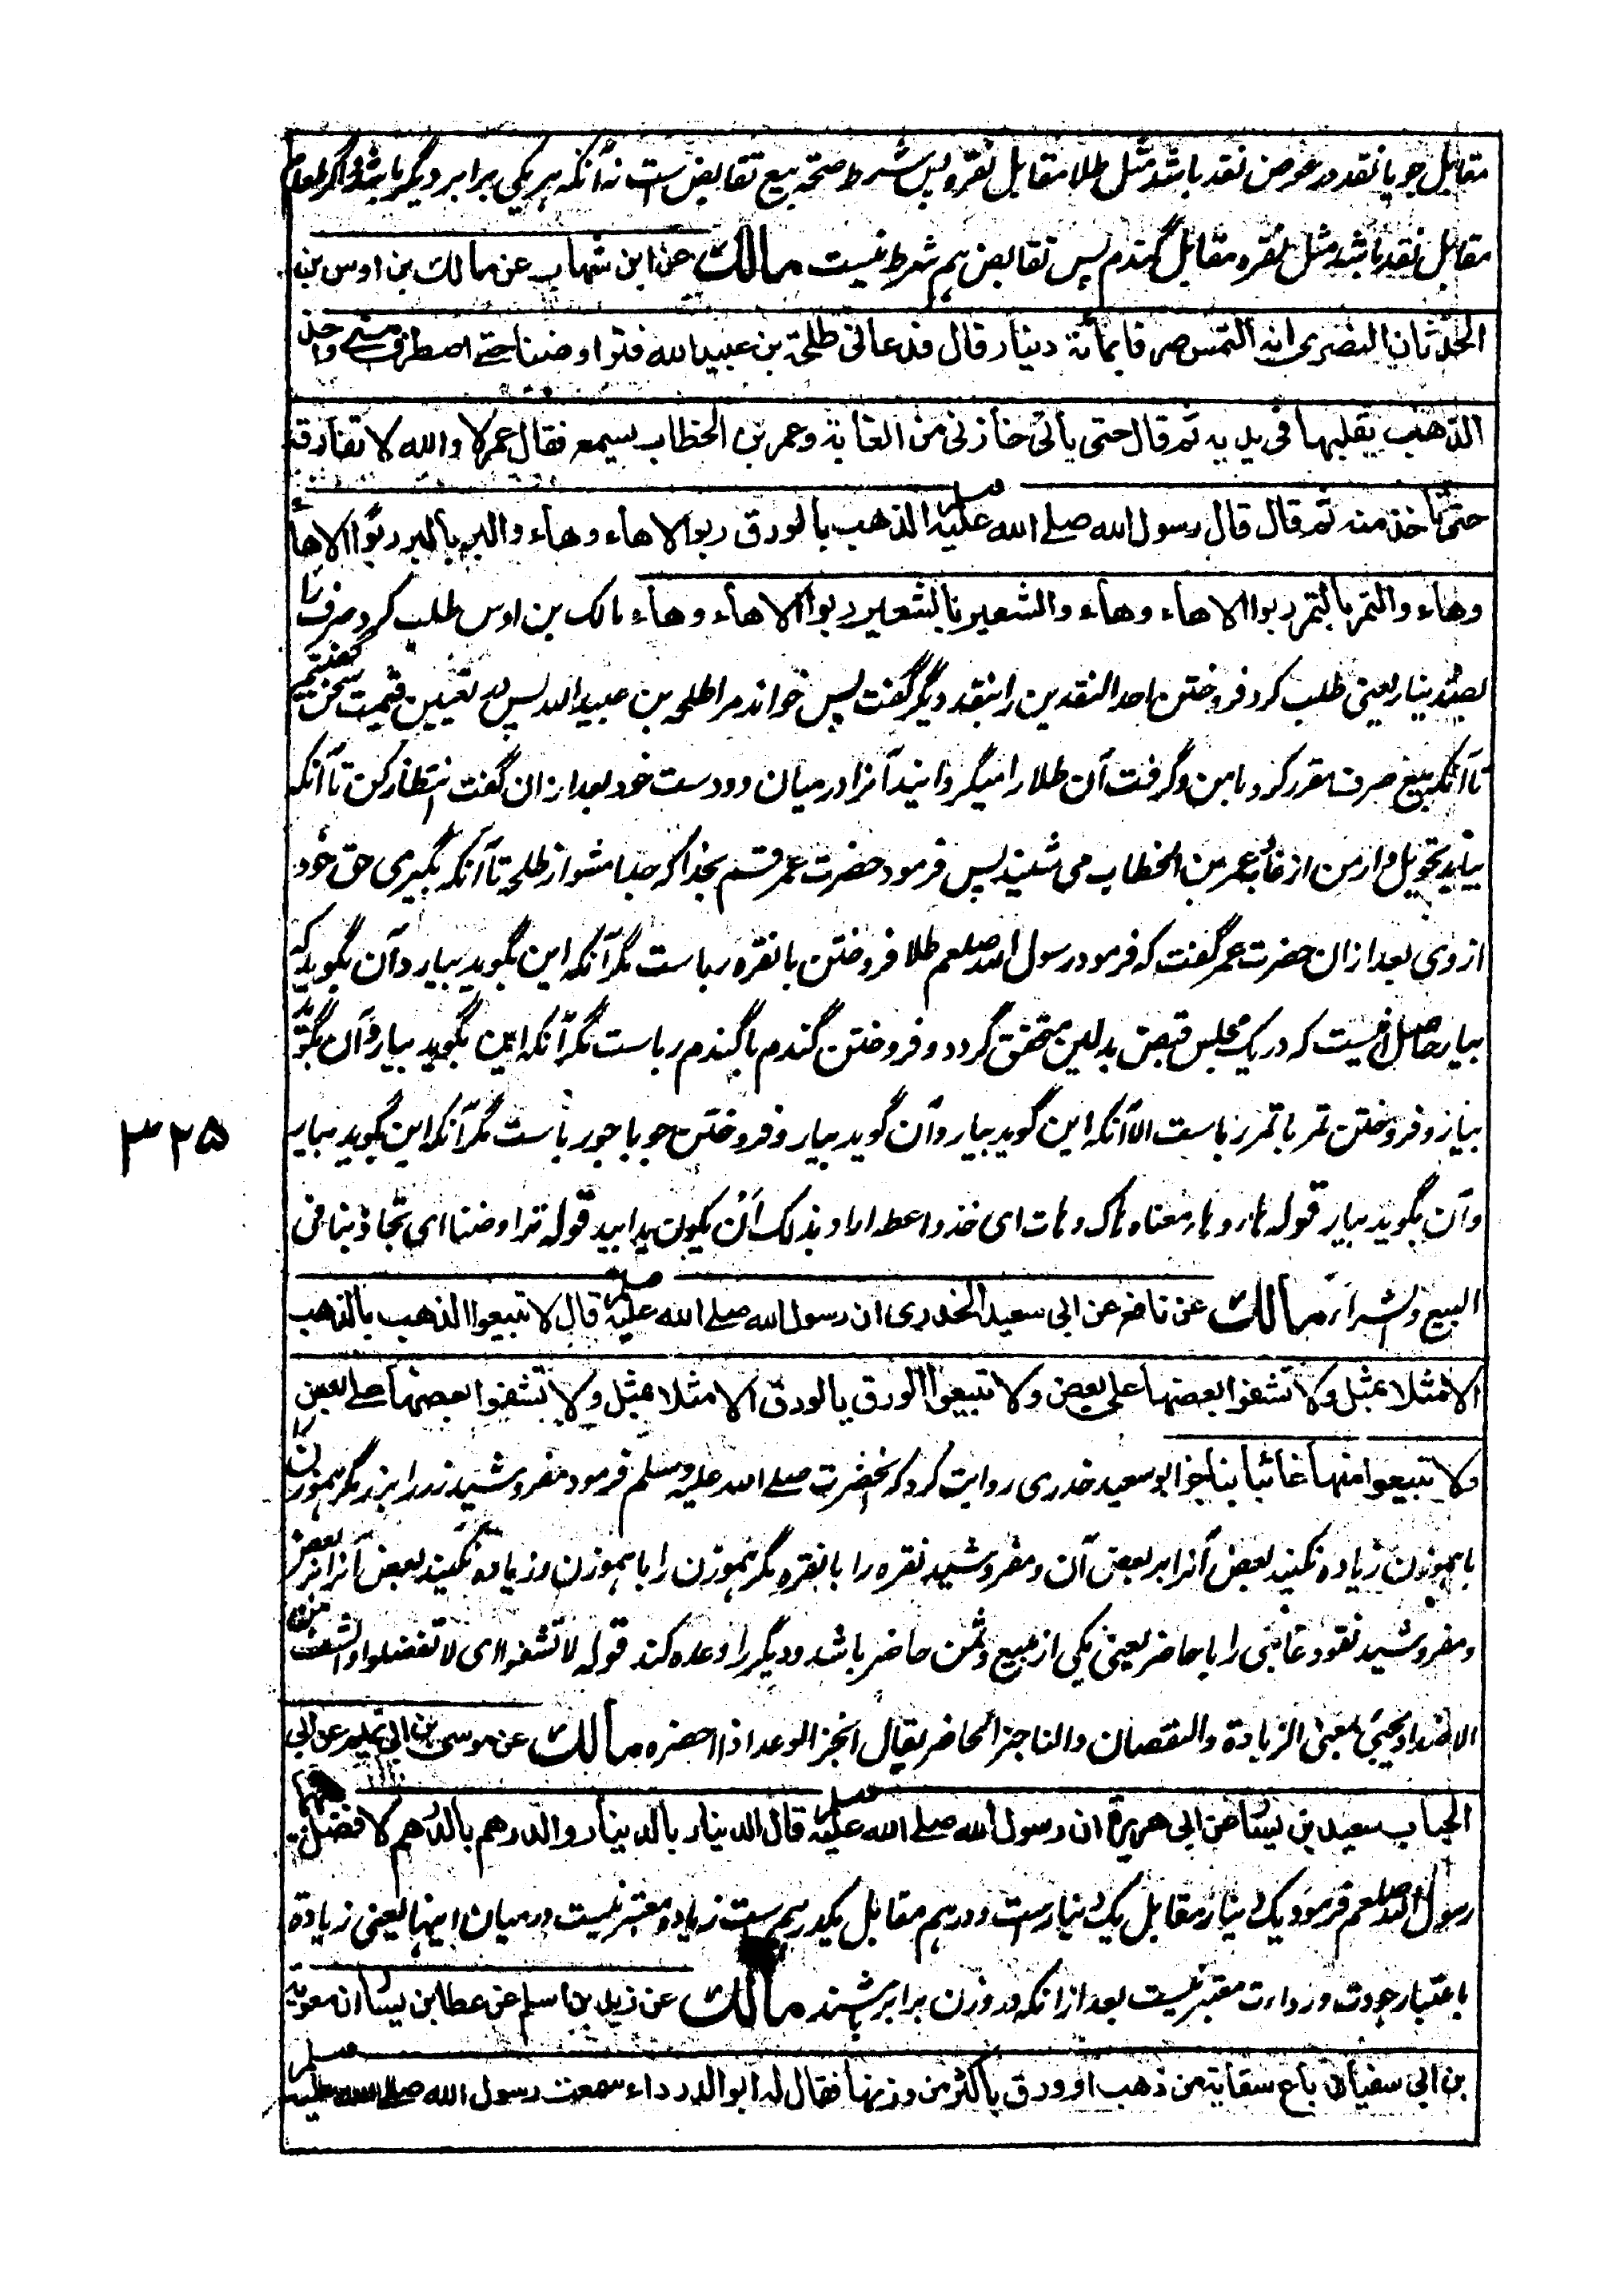 مقابل جو یا نقد در عوض نقد باشد مثل طلا مقابل نقره پس شرط صحت بیع تقابض ست نه آنکه هر یکی برابر دیگر باشد و اگر طعام
مقابل نقد باشد مثل نقره مقابل گندم پس تقابض هم شرط نیست مالك عن ابن شهاب عن مالك بن اوس بن
الحدثان النصری انه التمس صرفا بمائة دینار قال فدعانی طلحة بن عبید الله فتراوضنا حتے اصطرف منے واخذ
الذهب یقلبها فی یدیه ثم قال حتی یأتی خازنی من الغابة وعمر بن الخطاب یسمع فقال عمر لا والله لا تفارقه
حتی تأخذ منه ثم قال قال رسول الله صلے الله علیه وسلم الذهب بالورق ربوا الا هاء وهاء والبر بالبر ربوا الا هاء
وهاء والتمر بالتمر ربوا الا هاء وهاء والشعیر بالشعیر ربوا الا هاء وهاء مالک بن اوس طلب کرد صرف را
بصد دینار یعنی طلب کرد فروختن احد النقدین را بنقد دیگر گفت پس خواند مرا طلحه بن عبید الله پس در تعیین قیمت سخن گفتیم
تا آنکه بیع صرف مقرر کرد بامن و گرفت آن طلا را میگردانید آنرا درمیان دو دست خود بعد ازان گفت انتظار کن تا آنکه
بیاید تحویلدار من از غابه و عمر بن الخطاب می شنید پس فرمود حضرت عمر قسم بخدا که جدا مشو از طلحه تا آنکه بگیری حق خود
از وی بعد ازان حضرت عمر گفت که فرمود رسول الله صلعم طلا فروختن با نقره رباست مگر آنکه این بگوید بیار و آن بگوید که
بیار حاصل آنست که در یک مجلس قبض بدلین متحقق گردد و فروختن گندم با گندم رباست مگر آنکه این بگوید بیار و آن بگوید
بیار و فروختن تمر با تمر رباست الا آنکه این گوید بیار و آن گوید بیار و فروختن جو با جو رباست مگر آنکه این بگوید بیار
و آن بگوید بیار قوله هاء وهاء معناه هاک وهات ای خذ واعط اراد بذلک ان یکون یدا بید قوله تراوضنا ای تجاذبنا فی
البیع والشراء مالك عن نافع عن ابی سعید الخدری ان رسول الله صلے الله علیه وسلم قال لا تبیعوا الذهب بالذهب
الا مثلا بمثل ولا تشفوا بعضها علی بعض ولا تبیعوا الورق بالورق الا مثلا بمثل ولا تشفوا بعضها علے بعض
ولا تبیعوا منها غائبا بناجز ابو سعید خدری روایت کرد که آنحضرت صلے الله علیه وسلم فرمود مفروشید زر را بزر مگر هموزن را
با هموزن زیاده نکنید بعض آنرا بر بعض آن و مفروشید نقره را با نقره مگر هموزن را با هموزن و زیاده نکنید بعض آنرا بر بعض
و مفروشید نقود غائبی را با حاضر یعنی یکی از مبیع و ثمن حاضر باشد و دیگر را وعده کند قوله لا تشفوا ای لا تفضلوا والشف من
الاضداد یجئ بمعنی الزیادة والنقصان والناجز الحاضر یقال انجز الوعد اذا احضره مالك عن موسی بن ابی تمیم عن ابی
الحباب سعید بن یسار عن ابی هریرة ان رسول الله صلے الله علیه وسلم قال الدینار بالدینار والدرهم بالدرهم لا فضل بینهما
رسول الله صلعم فرمود یک دینار مقابل یک دینار ست و درهم مقابل یکدرهم ست زیاده معتبر نیست درمیان اینها یعنی زیادة
باعتبار جودت و رداءت معتبر نیست بعد ازانکه در وزن برابر باشند مالك عن زید بن اسلم عن عطا بن یسار ان معویة
بن ابی سفیان باع سقایة من ذهب او ورق باکثر من وزنها فقال له ابو الدرداء سمعت رسول الله صلے الله علیه وسلم
۳۲۵